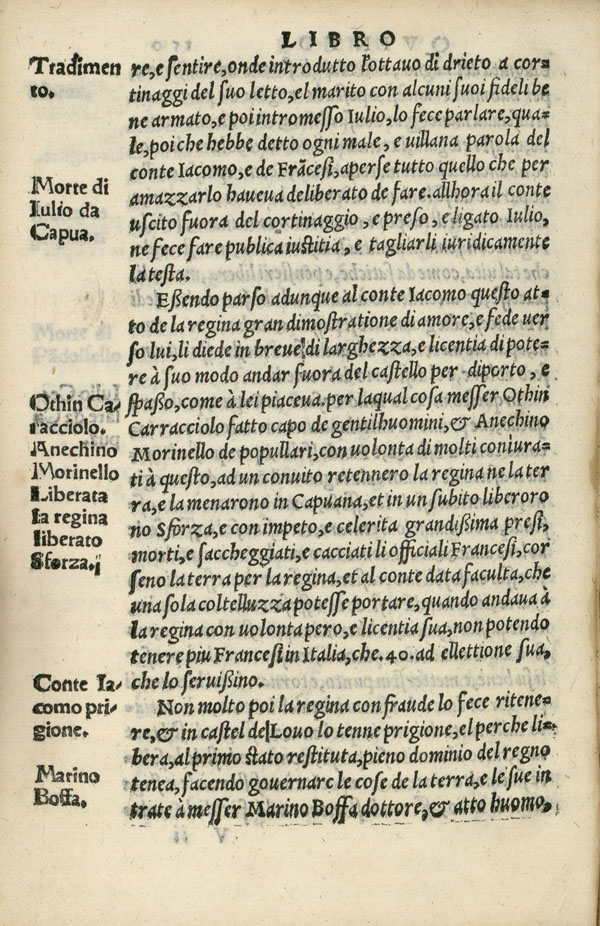 LIBRO
Tradimen
to.
re, e sentire, onde introdutto l'ottauo di drieto a cor=
tinaggi del suo letto, el marito con alcuni suoi fideli be
ne armato, e poi intromesso Iulio, lo fece parlare, qua=
le, poi che hebbe detto ogni male, e uillana parola del
conte Iacomo, e de Frãcesi, aperse tutto quello che per
Morte di
Iulio da
Capua.
amazzarlo haueua deliberato de fare. allhora il conte
uscito fuora del cortinaggio, e preso, e ligato Iulio,
ne fece fare publica iustitia, e tagliarli iuridicamente
la testa.
Essendo parso adunque al conte Iacomo questo at=
to de la regina gran dimostratione di amore, e fede uer
so lui, li diede in breue di larghezza, e licentia di pote=
re à suo modo andar fuora del castello per diporto, e
Othin Ca-
racciolo.
Anechino
Morinello
Liberata
la regina
liberato
Sforza.
spasso, come à lei piaceua. per laqual cosa messer Othin
Carracciolo fatto capo de gentilhuomini, & Anechino
Morinello de populari, con uolonta di molti coniura=
ti à questo, ad un conuito retennero la regina ne la ter
ra, e la menarono in Capuana, et in un subito liberoro
no Sforza, e con impeto, e celerita grandissima presi,
morti, e saccheggiati, e cacciati li officiali Francesi, cor
seno la terra per la regina, et al conte data faculta, che
una sola coltelluzza potesse portare, quando andaua à
la regina con uolonta pero, e licentia sua, non potendo
tenere piu Francesi in Italia, che .40. ad ellettione sua,
che lo seruissino.
Conte Ia-
como pri-
gione.
Non molto poi la regina con fraude lo fece ritene=
re, & in castel de Louo lo tenne prigione, el perche li=
bera, al primo stato restituta, pieno dominio del regno
Marino
Boffa.
tenea, facendo gouernare le cose de la terra, e le sue in
trate à messer Marino Boffa dottore, & atto huomo,